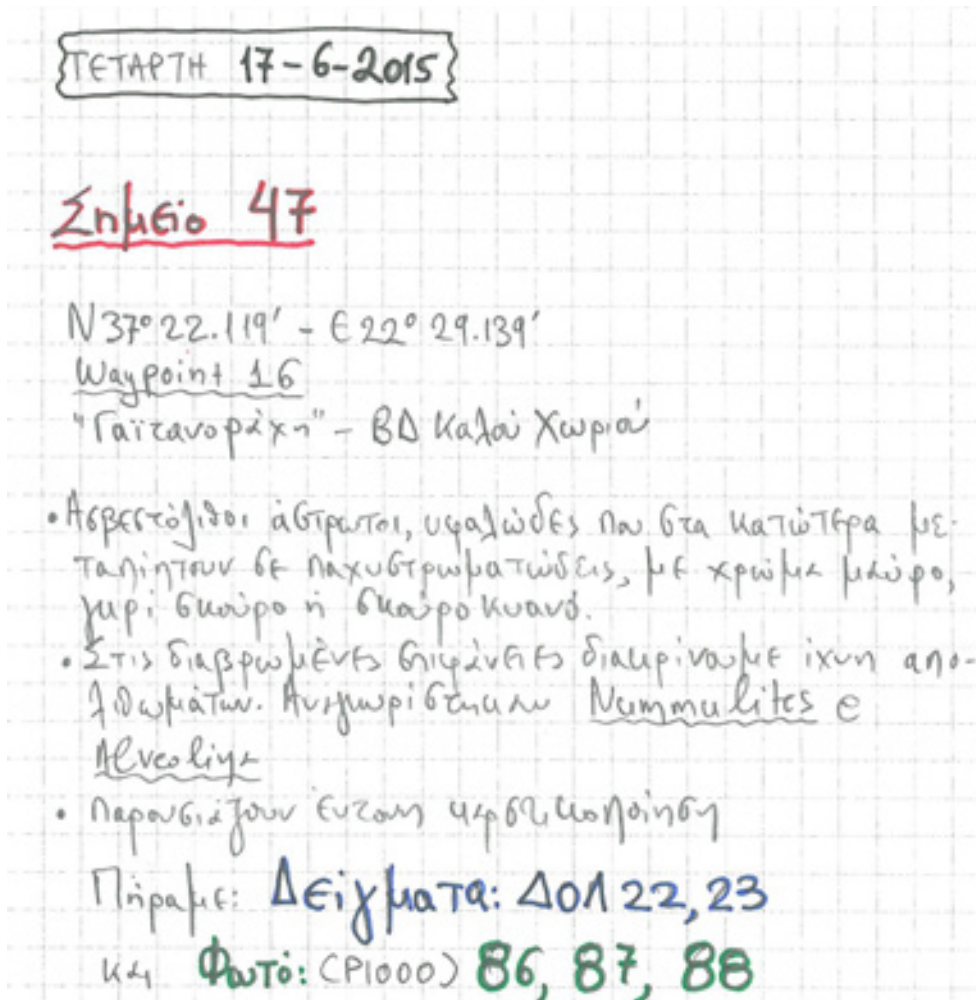 ΤΕΤΑΡΤΗ 17-6-2015
Σημείο 47
N37° 22.119' - E22° 29.139'
Waypoint 16
"Γαϊτανοράχη" - ΒΔ Καλά Χωριά
• Ασβεστόλιθοι άστρωτοι, υφαλώδες που στα κατώτερα με-
ταπίπτουν σε παχυστρωματώδεις, με χρώμα μαύρο,
γκρί σκούρο ή σκούρο κυανό.
• Στις διαβρωμένες επιφάνειες διακρίνουμε ίχνη απο-
λιθωμάτων. Αναγνωρίστηκαν Nummulites e
Alveolina
• Παρουσιάζουν έντονη καρστικοποίηση
Πήραμε: Δείγματα: ΔΟΛ 22, 23
και Φωτό: (P1000) 86, 87, 88